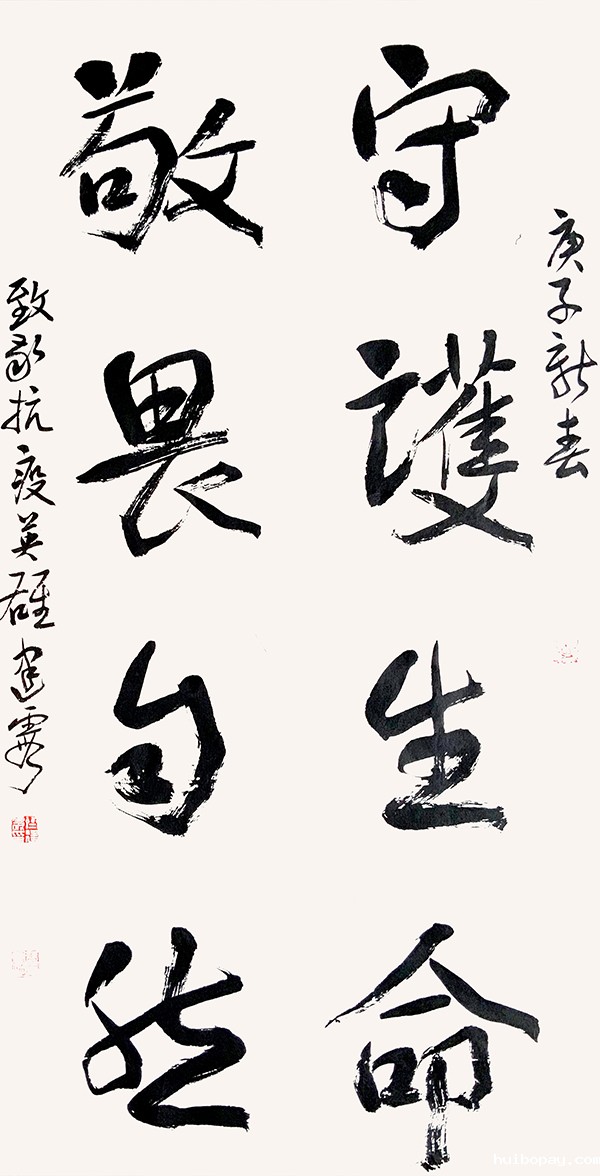 庚子新春
守護生命
敬畏自然
致敬抗疫英雄 建霞
huibopay.com